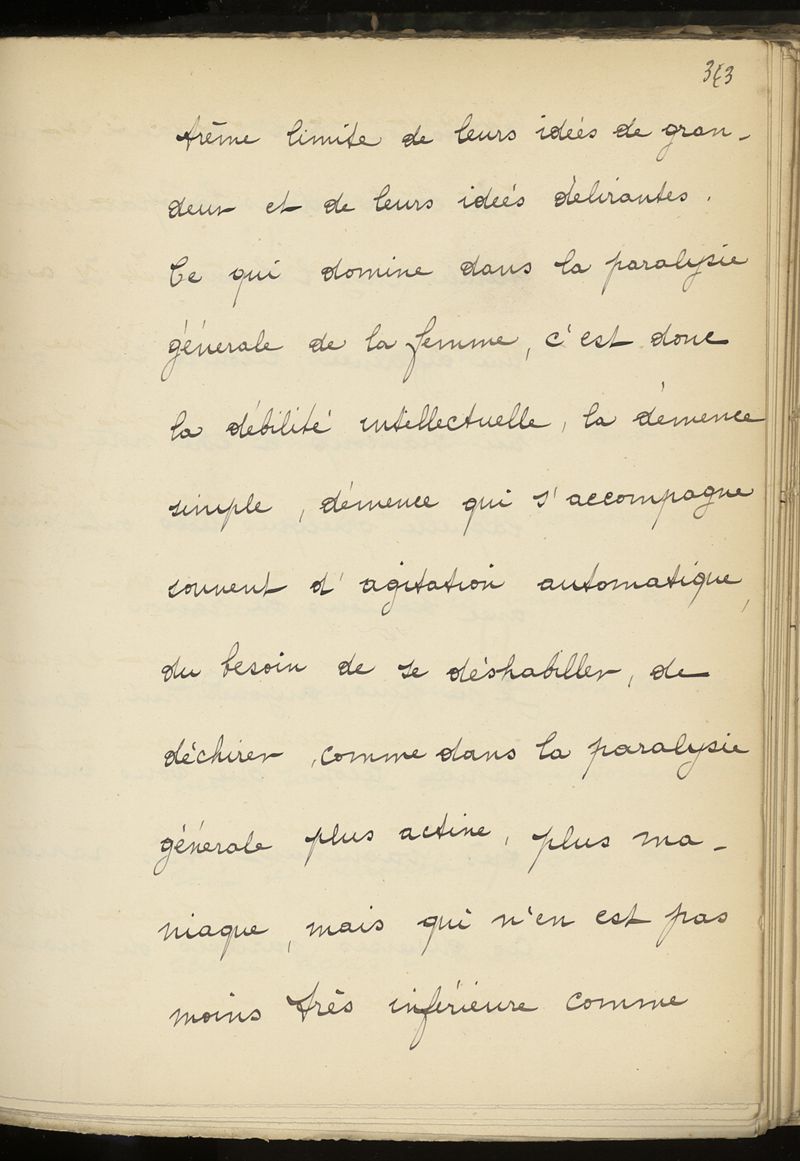 343
trême limite de leurs idées de gran-
deur et de leurs idées délirantes.
Ce qui domine dans la paralysie
générale de la femme, c'est donc
la débilité intellectuelle, la démence
simple, démence qui s'accompagne
souvent d'agitation automatique,
du besoin de se déshabiller, de
déchirer, comme dans la paralysie
générale plus active, plus ma-
niaque, mais qui n'en est pas
moins très inférieure comme